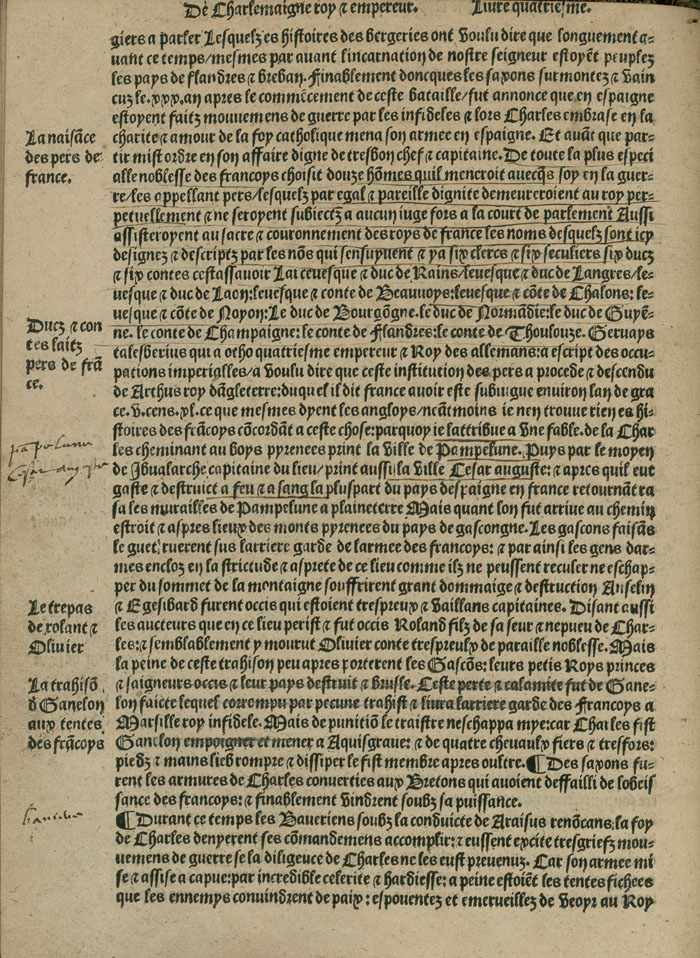 De Charlemaigne roy ⁊ empereur. Liure quatriesme.
giers a parler Lesquelz es histoires des bergeries ont voulu dire que longuement a-
uant ce temps/mesmes par auant lincarnation de nostre seigneur estoyēt peuplez
les pays de flandres ⁊ breban. Finablement doncques les saxons surmontez ⁊ vain
cuz le.xxx.an apres le commēcement de ceste bataille/fut annonce que en espaigne
estoyent faitz mouuemens de guerre par les infideles ⁊ lors Charles embrase en la
charite ⁊ amour de la foy catholique mena son armee en espaigne. Et auāt que par-
tir mist ordre en son affaire digne de tresbon chef ⁊ capitaine. De toute la plus especi
alle noblesse des francoys choisit douze hōmes quil menēroit auecq̄s soy en la guer-
re/les appellant pers/lesquelz par egal ⁊ pareille dignite demeureroient au roy per-
petuellement ⁊ ne seroyent subiectz a aucun iuge fors a la court de parlement Aussi
assisteroyent au sacre ⁊ couronnement des roys de france les noms desquelz sont icy
designez ⁊ descriptz par les nōs qui sensuyuent ⁊ ya six clercs ⁊ six seculiers six ducz
⁊ six contes cestassauoir Larceuesque ⁊ duc de Rains/leuesque ⁊ duc de Langres/le-
uesque ⁊ duc de Laon:leuesque ⁊ conte de Beauuoys:leuesque ⁊ cōte de Chalons: le-
uesque ⁊ cōte de Noyon:Le duc de Bourgōgne.le duc de Normādie:le duc de Guyē-
ne. le conte de Champaigne: le conte de Flandres: le conte de Thoulouze. Geruays
talesberius qui a otho quatriesme empereur ⁊ Roy des allemans:a escript des occu-
pations imperialles/a voulu dire que ceste institution des pers a procede ⁊ descendu
de Arthus roy dāgleterre:duquel il dit france auoir este subiugue enuiron lan de gra
ce.v.cens.xl.ce que mesmes dyent les angloys/neātmoins ie nen trouue rien es hi-
stoires des frācoys cōcordāt a ceste chose:parquoy ie lattribue a vne fable.de la Char
les cheminant au boys pyrenees print la ville de Pampelune. Puys par le moyen
de Ibnalarche capitaine du lieu/print aussi la ville Cesar auguste: ⁊ apres quil eut
gaste ⁊ destruict a feu ⁊ a sang la pluspart du pays despaigne en france retournāt ra
sa les murailles de Pampelune a plaineterre Mais quant lon fut arriue au chemin
estroit ⁊ aspres lieux des monts pyrenees du pays de gascongne. Les gascons faisās
le guet/ruerent sus larriere garde de larmee des francoys: ⁊ par ainsi les gens dar-
mes encloz en la strictude ⁊ asprete de ce lieu comme ilz ne peussent reculer ne eschap-
per du sommet de la montaigne souffrirent grant dommaige ⁊ destruction Anselin
⁊ Egesibard furent occis qui estoient trespreux ⁊ vaillans capitaines. Disant aussi
les aucteurs que en ce lieu perist ⁊ fut occis Roland filz de sa seur ⁊ nepueu de Char-
les:⁊ semblablement y mourut Oliuier conte trespreulx de paraille noblesse. Mais
la peine de ceste trahison peu apres porterent les Gascōs: leurs petis Roys princes
⁊ saigneurs occis ⁊ leur pays destruit ⁊ brusle. Ceste perte ⁊ calamite fut de Gane-
lon faicte lequel corrompu par pecune trahist ⁊ liura larriere garde des Francoys a
Marsille roy infidele. Mais de punitiō le traistre neschappa mye:car Charles fist
Ganelon empoigner et mener a Aquisgraue: ⁊ de quatre cheuaulx fiers ⁊ tresfors:
piedz ⁊ mains lieb rompre ⁊ dissiper le fist membre apres oultre. ¶ Des saxons fu-
rent les armures de Charles conuerties aux Bretons qui auoient deffailli de lobeis
sance des francoys: ⁊ finablement vindrent soubz sa puissance.
¶ Durant ce temps les Baueriens soubz la conduicte de Araisus renōcans la foy
de Charles denyerent ses cōmandemens accomplir: ⁊ eussent excite tresgriefz mou-
uemens de guerre se la diligence de Charles ne les eust preuenuz. Car son armee mi
se ⁊ assise a capue:par incredible celerite ⁊ hardiesse: a peine estoiēt les tentes fichees
que les ennemys conuindrent de paix : espouentez et emerueillez de veoyr au Roy
La naisāce
des pers de
france.
Ducz ⁊ con
tes laitz
pers de frā
ce.
Le trepas
de rolant ⁊
Oliuier
La trahisō
d Ganelon
aux tentes
des frācoys